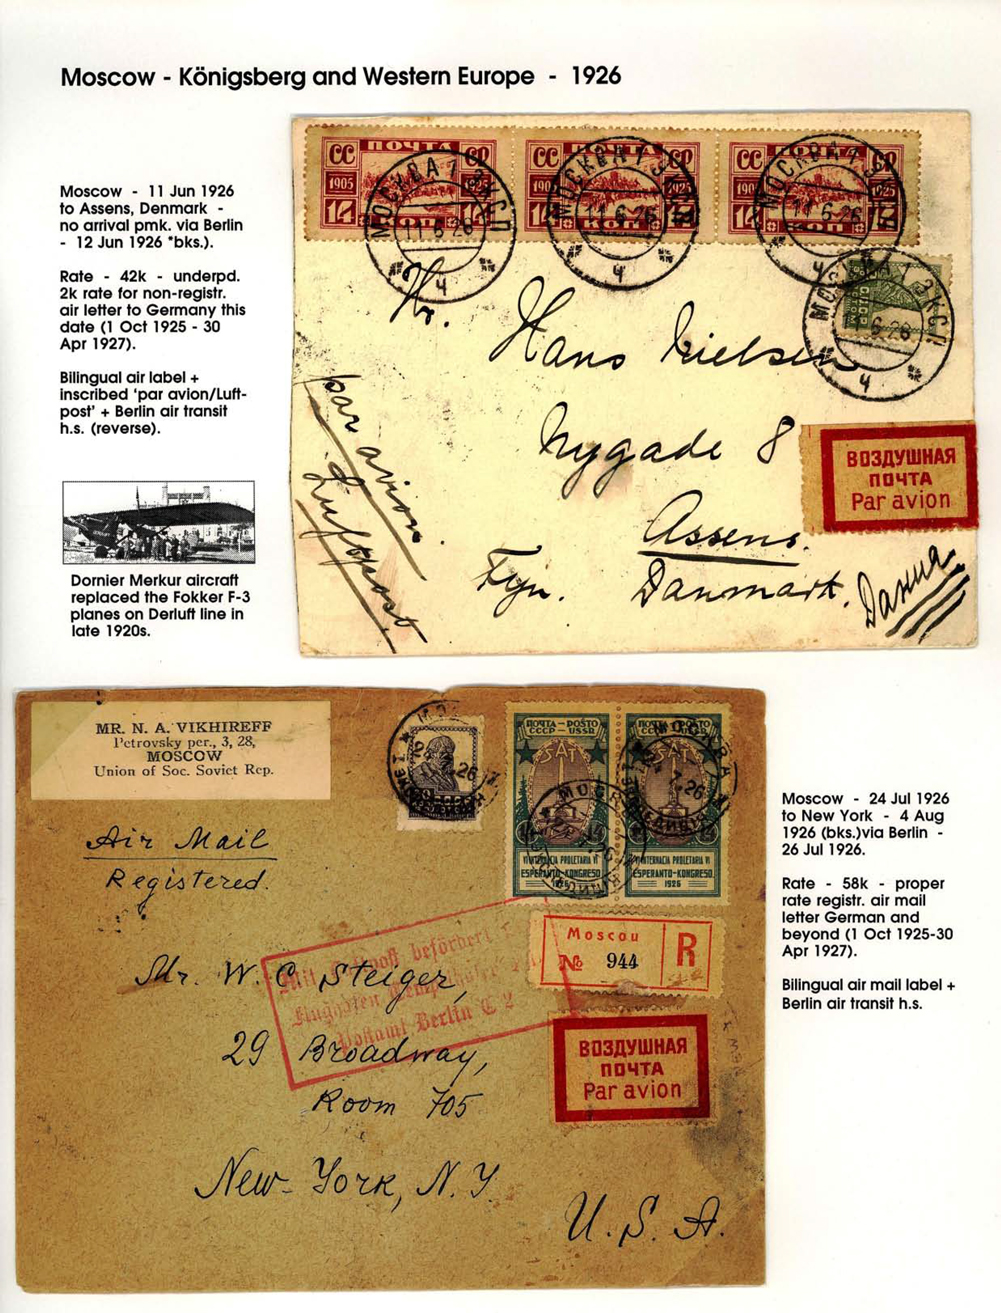 Moscow - Königsberg and Western Europe - 1926
Moscow - 11 Jun 1926
to Assens, Denmark -
no arrival pmk. via Berlin
- 12 Jun 1926 "bks.).
Rate - 42k - underpd.
2k rate for non-registr.
air letter to Germany this
date (1 Oct 1925 - 30
Apr 1927).
Bilingual air label +
inscribed 'par avion/Luft-
post' + Berlin air transit
h.s. (reverse).
Dornier Merkur aircraft
replaced the Fokker F-3
planes on Derluft line in
late 1920s.
СС ПОЧТА СР
1905 1925
14 КОП 14
МОСКВА 1 ЭКСП
11 6 26
Ч
МОСКВА 1 ЭКСП
11.6.26
Ч
МОСКВА 1
11 6-26
Ч
Hr. Hans Nielsen
Nygade 8
Assens.
Fyn. Danmark.
Дания
par avion.
Luftpost.
ВОЗДУШНАЯ
ПОЧТА
Par avion
MR. N. A. VIKHIREFF
Petrovsky per., 3, 28,
MOSCOW
Union of Soc. Soviet Rep.
Air Mail
Registered.
Mr. W. C. Steiger,
29 Broadway,
Room 705
New-York, N.Y.
U.S.A.
ПОЧТА - POŜTO
СССР - USSR
SAT
14
VI INTERNACIA PROLETARIA VI
ESPERANTO-KONGRESO
ПОЧТА - POŜTO
СССР - USSR
14
VI INTERNACIA PROLETARIA VI
ESPERANTO-KONGRESO
1926
Mit Luftpost befördert
Flughafen
Postamt Berlin C 2
Moscou
№ 944
R
ВОЗДУШНАЯ
ПОЧТА
Par avion
Moscow - 24 Jul 1926
to New York - 4 Aug
1926 (bks.)via Berlin -
26 Jul 1926.
Rate - 58k - proper
rate registr. air mail
letter German and
beyond (1 Oct 1925-30
Apr 1927).
Bilingual air mail label +
Berlin air transit h.s.